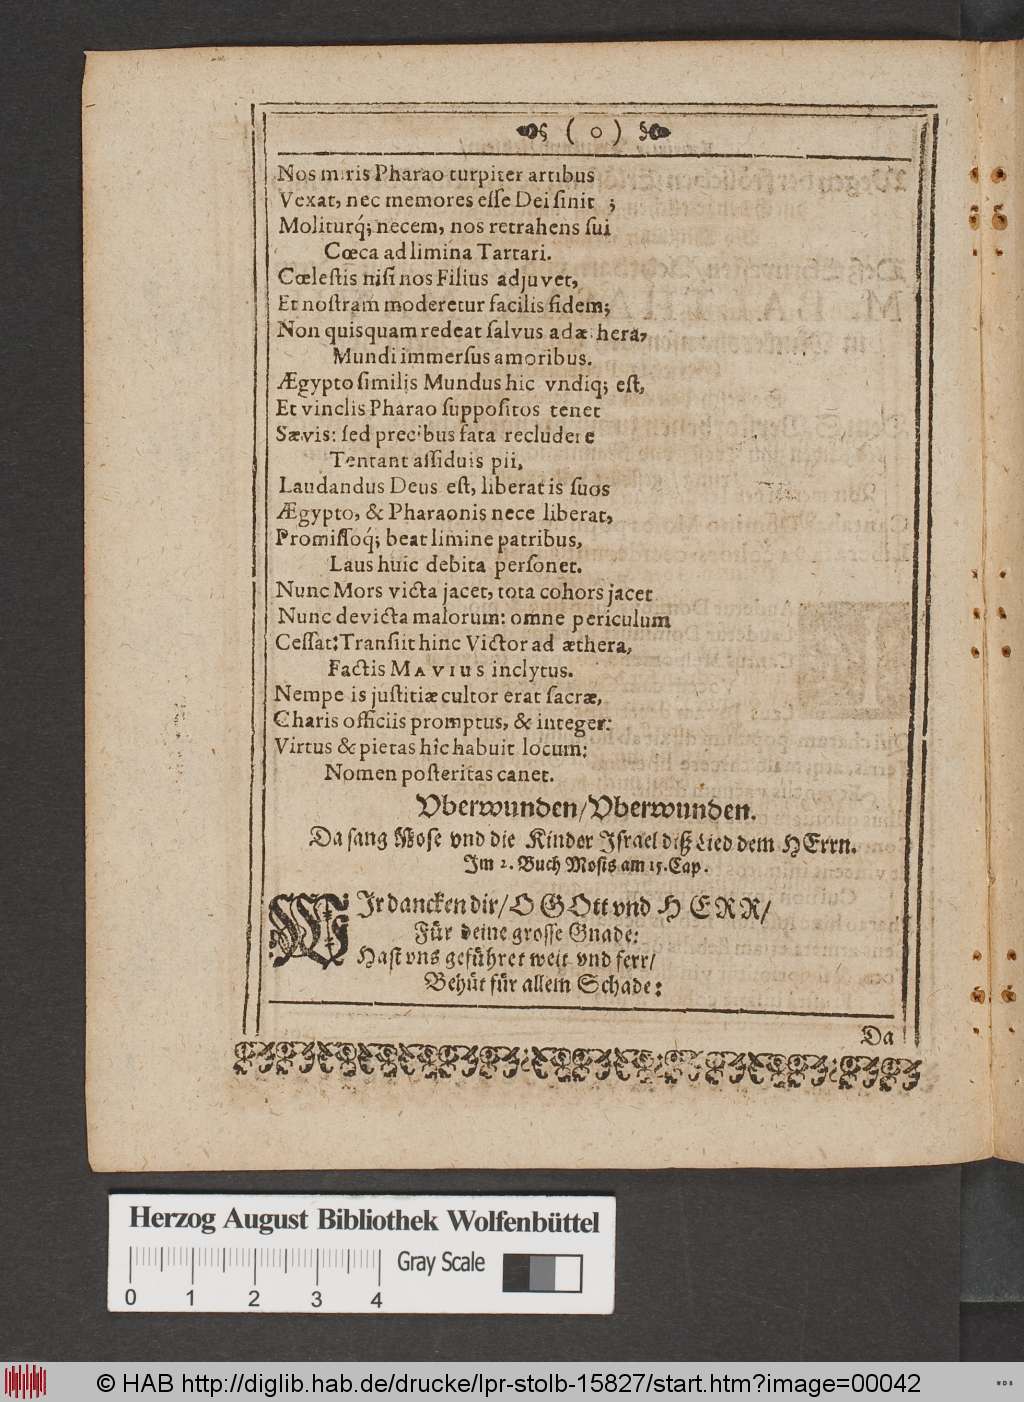 ( o )
Nos miris Pharao turpiter artibus
Vexat, nec memores eſſe Dei ſinit ;
Moliturq́; necem, nos retrahens ſui
Cœca ad limina Tartari.
Cœleſtis niſi nos Filius adjuvet,
Et noſtram moderetur facilis fidem;
Non quisquam redeat ſalvus ad æthera,
Mundi immerſus amoribus.
Ægypto ſimilis Mundus hic vndiq; eſt,
Et vinclis Pharao ſuppoſitos tenet
Sævis: ſed precibus fata recludere
Tentant aſſiduis pii,
Laudandus Deus eſt, liberat is ſuos
Ægypto, & Pharaonis nece liberat,
Promiſſoq́; beat limine patribus,
Laus huic debita perſonet.
Nunc Mors victa jacet, tota cohors jacet
Nunc devicta malorum: omne periculum
Ceſſat: Tranſiit hinc Victor ad æthera,
Factis MAVIUS inclytus.
Nempe is juſtitiæ cultor erat ſacræ,
Charis officiis promptus, & integer:
Virtus & pietas hîc habuit locum:
Nomen poſteritas canet.
Vberwunden/Vberwunden.
Da ſang Moſe vnd die Kinder Iſrael diß Lied dem HErrn.
Im 2. Buch Moſis am 15. Cap.
WIr dancken dir/ O GOtt vnd HERR/
Für deine groſſe Gnade:
Haſt vns geführet weit vnd ferr/
Behüt für allem Schade:
Da
Herzog August Bibliothek Wolfenbüttel
Gray Scale
0 1 2 3 4
© HAB http://diglib.hab.de/drucke/lpr-stolb-15827/start.htm?image=00042